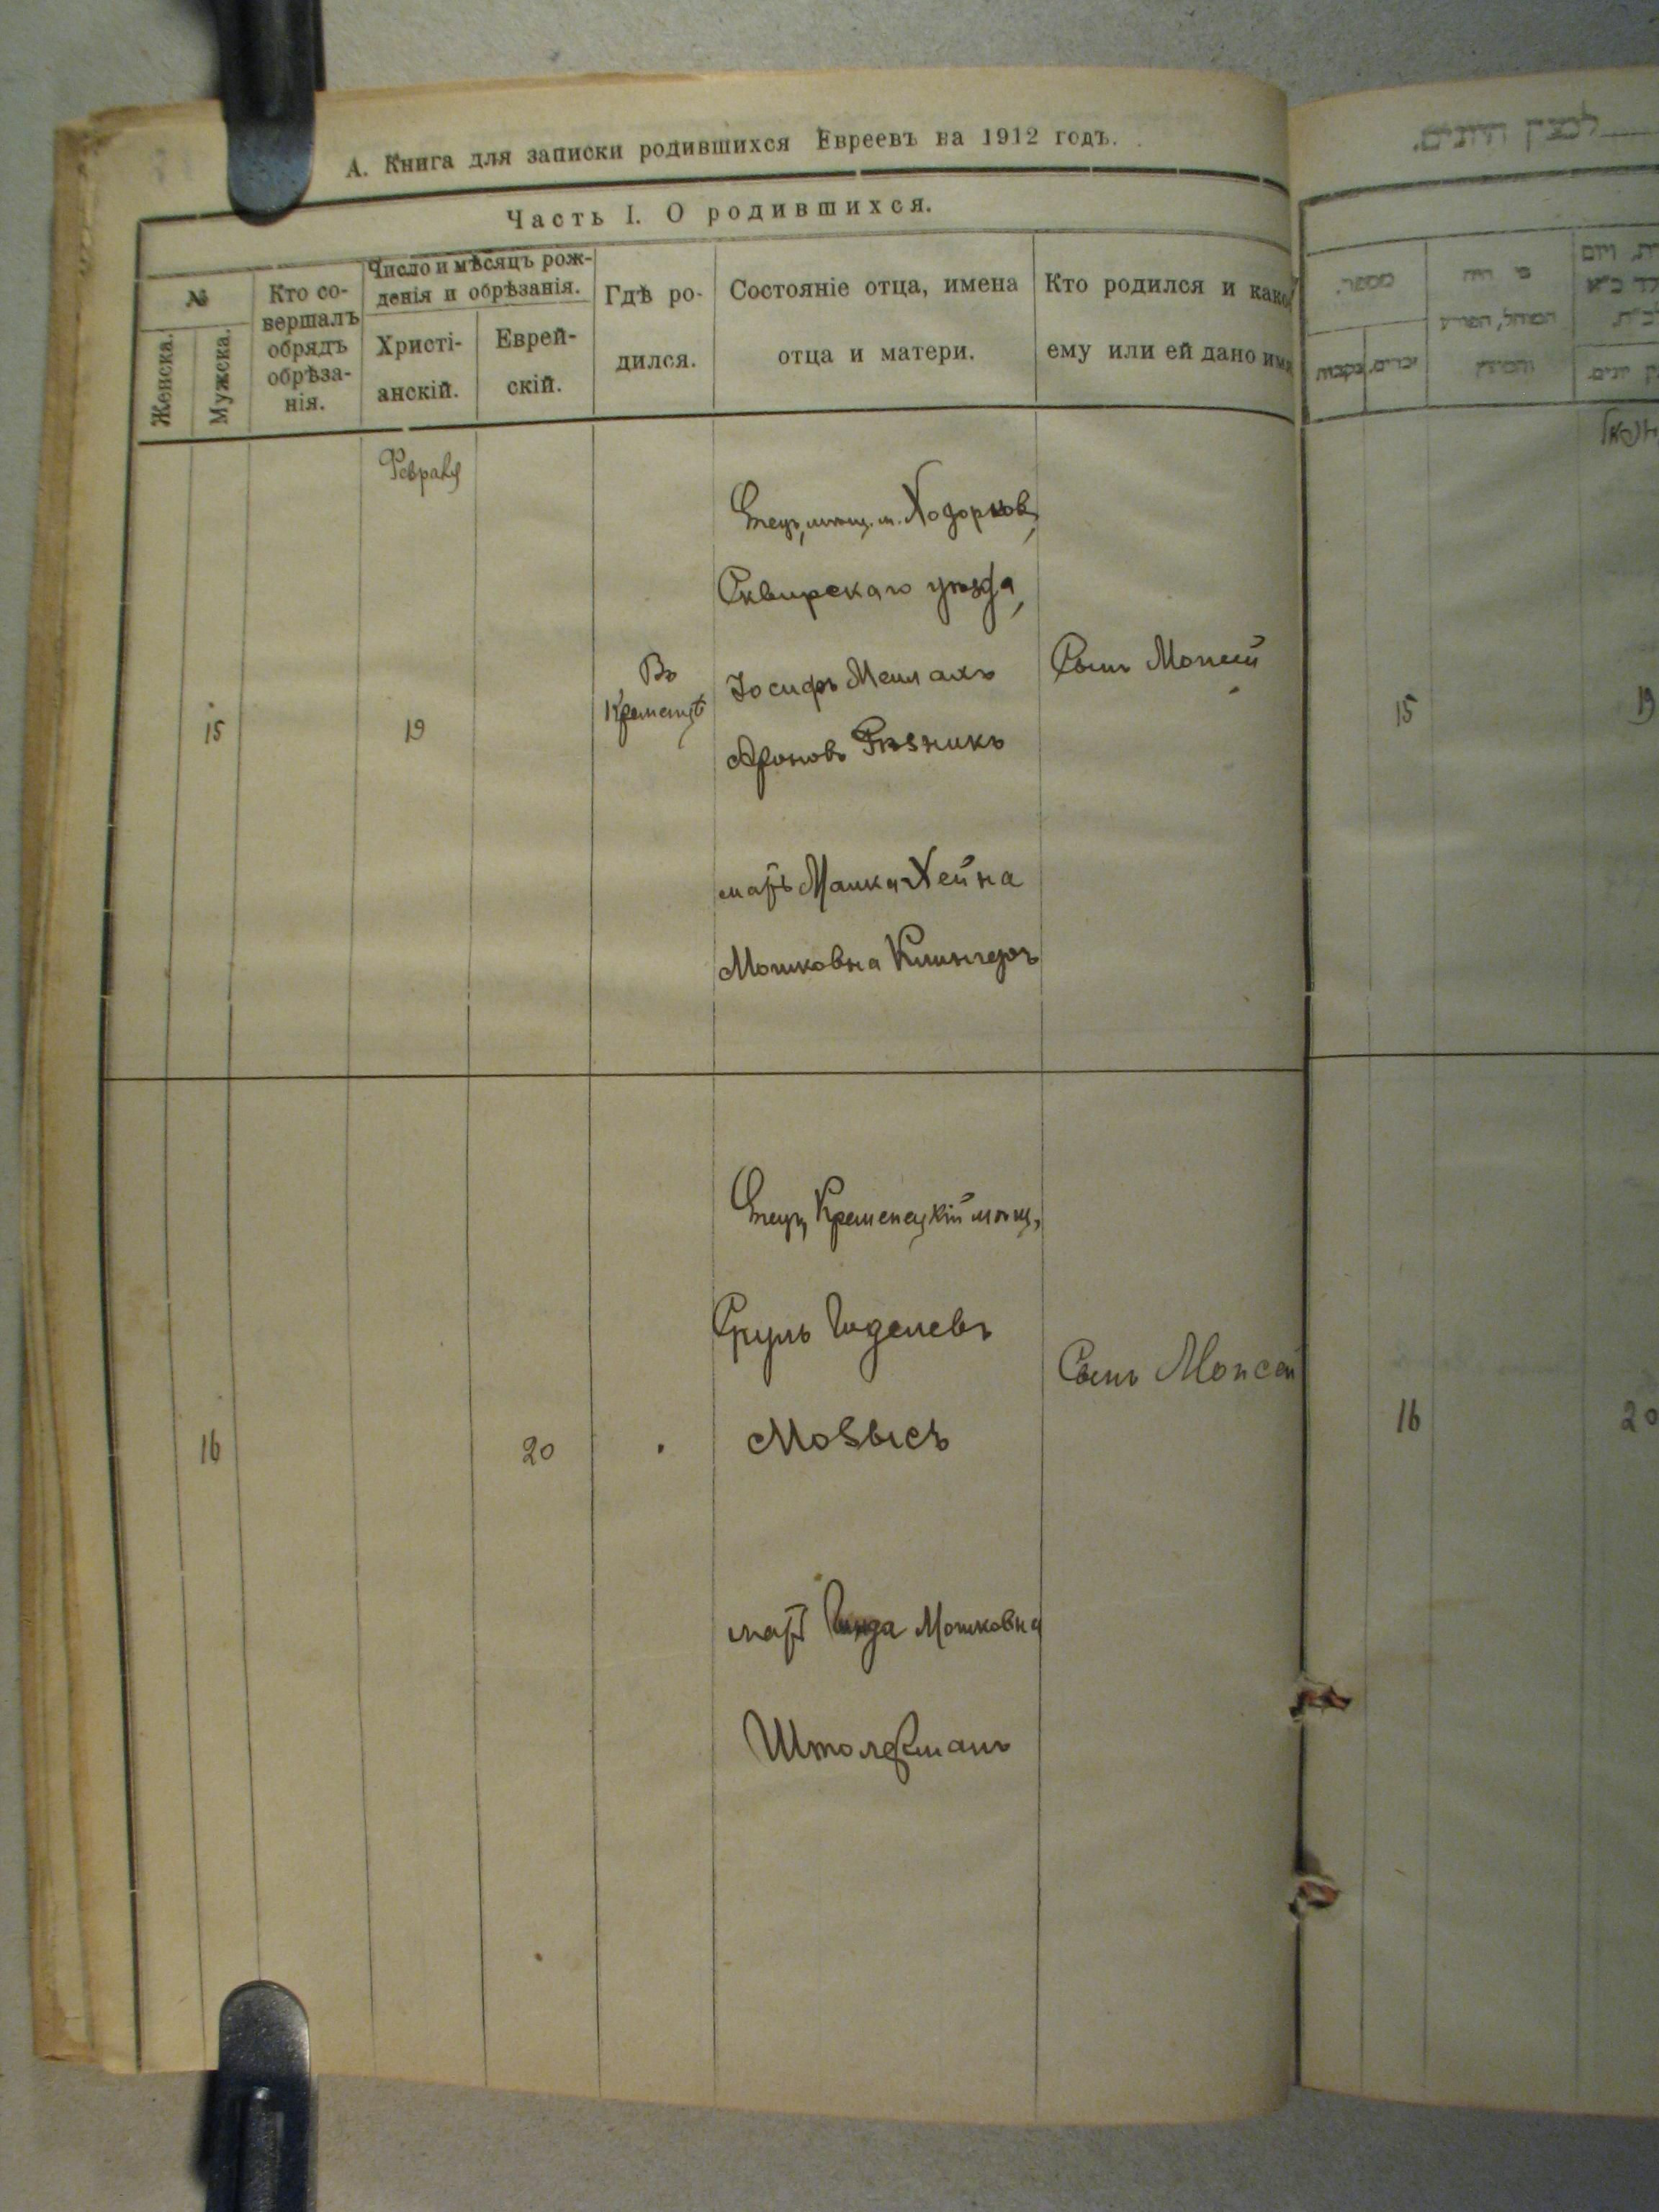 А. Книга для записки родившихся Евреевъ на 1912 годъ.
Часть I. О родившихся.
№
Женска.
Мужска.
Кто со-
вершалъ
обрядъ
обрѣза-
нія.
Число и мѣсяцъ рож-
денія и обрѣзанія.
Христі-
анскій.
Еврей-
скій.
Гдѣ ро-
дился.
Состояніе отца, имена
отца и матери.
Кто родился и какое
ему или ей дано имя
Февраля
15
19
Въ
Кременцѣ
Отецъ, мѣщ. м. Ходорковъ,
Сквирскаго уѣзда,
Іосифъ Мейлахъ
Ароновъ Рѣзникъ
мать Малка Хейна
Мошковна Клингеръ
Сынъ Моисей
16
20
Отецъ, Кременецкій мѣщ.,
Сруль Іоделевъ
Мовысъ
мать Мошковна
Штолерманъ
Сынъ Моисей
מספר.
זכרים.
נקבות
מי היה
המוהל, הפורע
והמוצץ
15
19
16
20